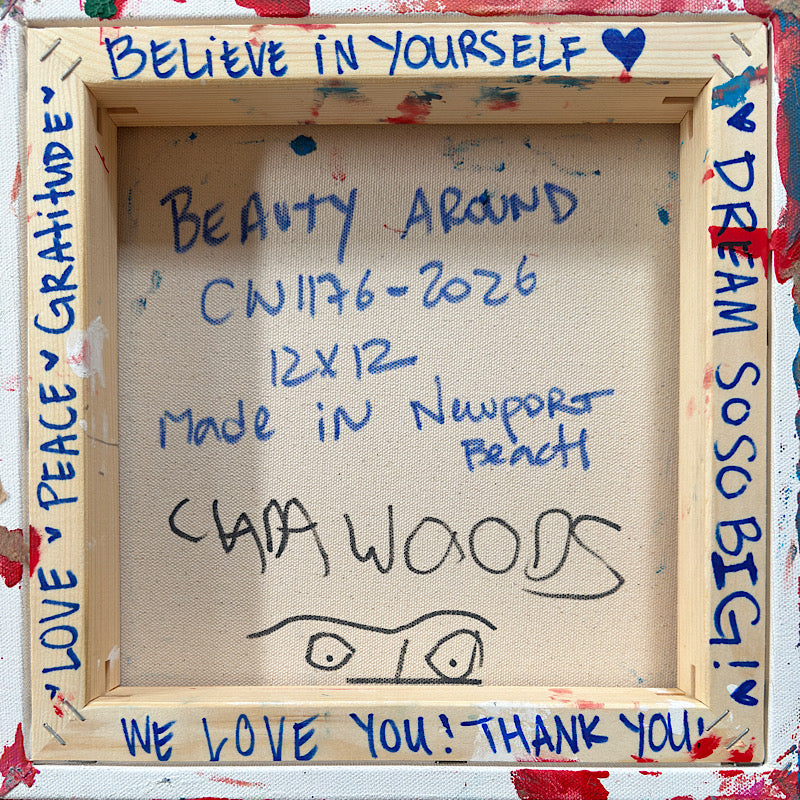 BELiEVE iN YOURSELF
BEAUTY AROUND
CW1176-2026
12X12
Made iN Newport
Beach
CLARA WOODS
LOVE PEACE GRatitUDE
DREAM SOSO BIG!
WE LOVE YOU! THANK YOU!